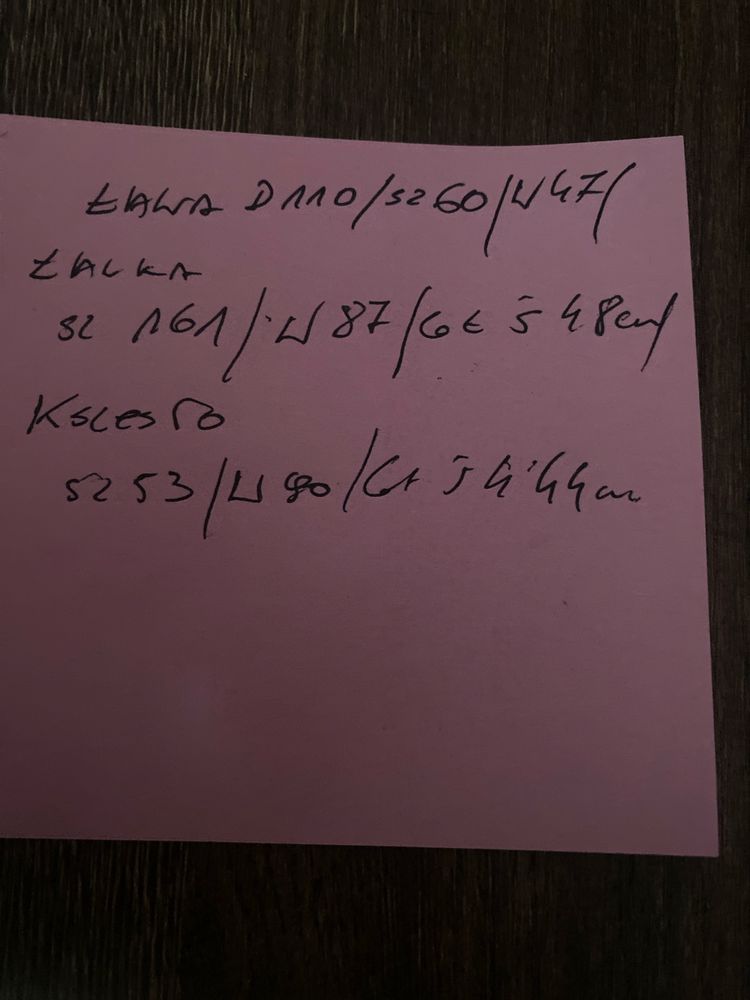 ŁAWA D110/SZ60/W47/
ŁAWKA
SZ 161/W87/GŁ S 48cm/
KRZESŁO
SZ 53/W 80/GŁ S 44cm